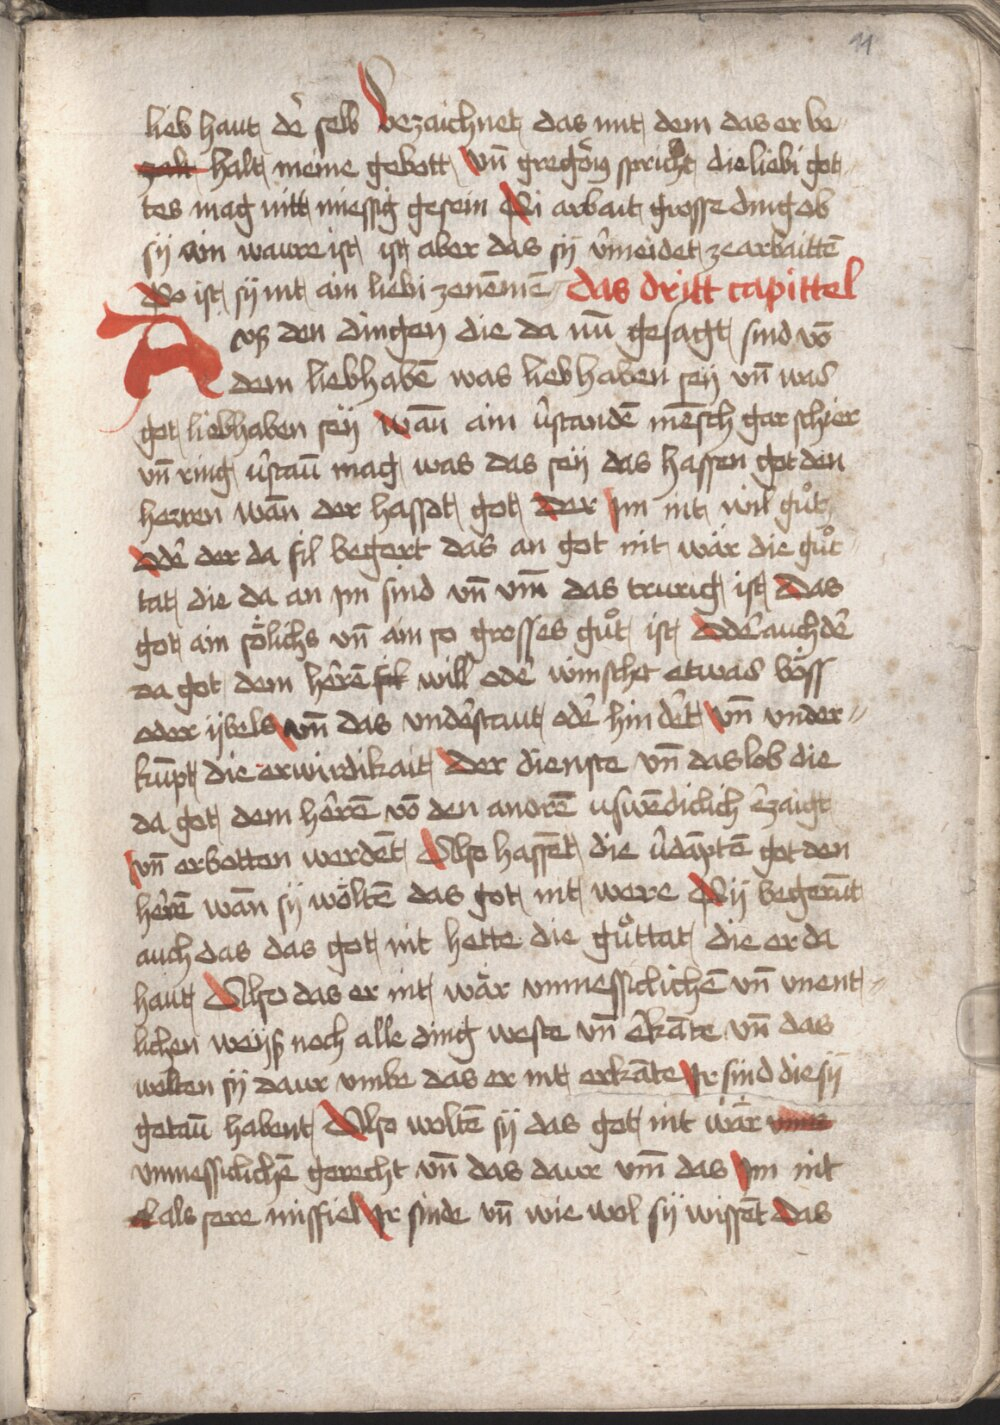 11
lieb haut der̃ selb bezaichnet das mit dem das er be-
halt meine gebott Vn̄ gregoriꝰ spricht die liebi got-
tes mag nitt miessig gesein Si arbait grosse ding ob
sÿ ain waure ist ist aber das sÿ v̉meidet ze arbaittē
So ist sÿ nit ain liebi ze nēmē Das dritt capittel
Avß den dingen die da nū gesagt sind vō
dem liebhabē was liebhaben seÿ vn̄ was
got liebhaben seÿ Wān ain v̉standē mēsch gar schier
vn̄ ring v̉staūt mag was das seÿ das hassen got den
herren wān der hasset got Der Im nit wil gůt
Odẽ der da fil begert das an got nit wär die gůt-
tat die da an Im sind vn̄ vm̄ das trurig ist Das
got ain sölichs vn̄ ain so grosses gůt ist Odẽ auch dẽ
da got dem hẽrē will odẽ winschet etwas böss
oder ÿbels vn̄ das vndẽstaut odẽ hindẽt Vn̄ vnder-
kūpt die erwirdikait Der dienste vn̄ das lob die
da got dem hẽrē vō den andrē uswēdiclich ẽzaigt
Vn̄ erbotten werdēt Also hassēt die v̉dāptē got den
hẽrē wān sÿ wöltē das got nit were Sÿ begerāt
auch das das got nit hette die gůttat die er da
haut Also das er nit wär vnmessiclichē vn̄ vnent-
lichen weÿß noch alle ding weste vn̄ ẽkāte vn̄ das
welten sÿ daur vmbe das er nit erkāte Ir sind die sÿ
getaū habent Also woltē sÿ das got nit wär
vnmessiclichē gerecht vn̄ das daur vm̄ das Im nit
als sere missfiel Ir sinde vn̄ wie wol sÿ wissēt Das